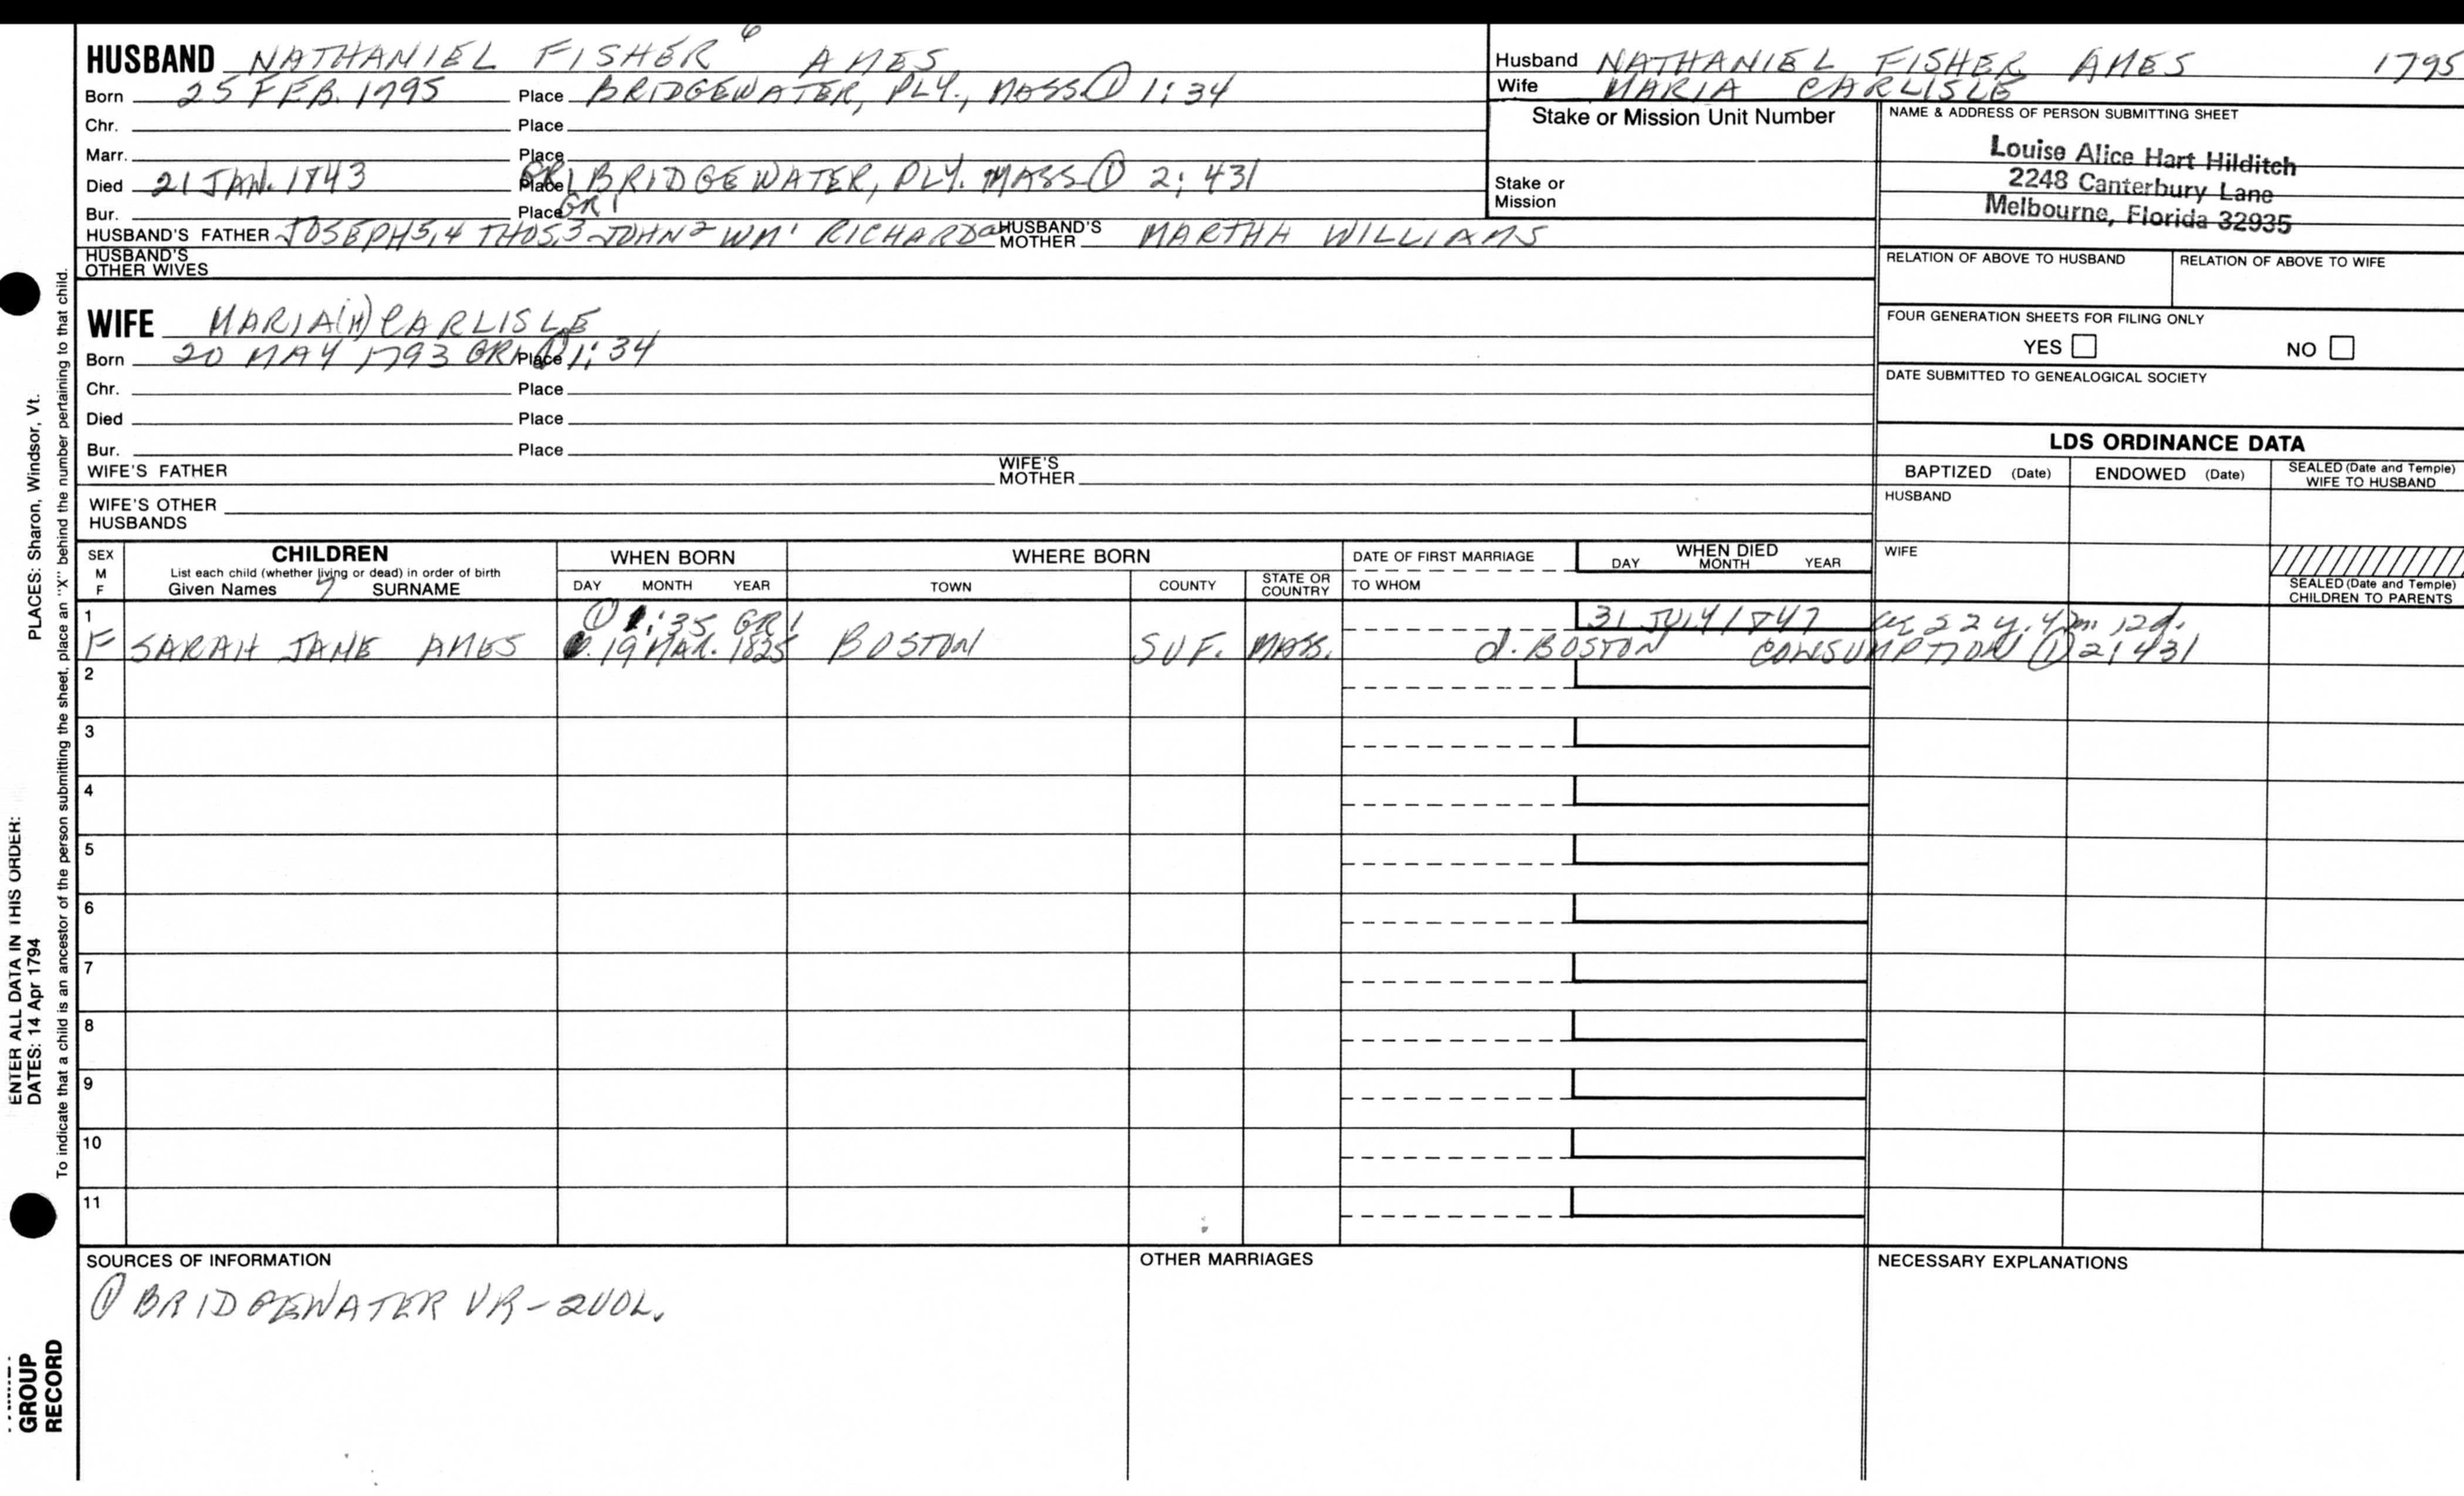 HUSBAND NATHANIEL FISHER 6 AMES
Born 25 FEB. 1795 Place BRIDGEWATER, PLY., MASS ① 1:34
Chr. Place
Marr. Place
Died 21 JAN. 1843 Place GR1 BRIDGEWATER, PLY. MASS ① 2:431
Bur. Place GR1
HUSBAND'S FATHER JOSEPH 5,4 THOS,3 JOHN 2 WM 1 RICHARD a HUSBAND'S MOTHER MARTHA WILLIAMS
HUSBAND'S OTHER WIVES
Husband NATHANIEL FISHER AMES 1795
Wife MARIA CARLISLE
Stake or Mission Unit Number
Stake or Mission
NAME & ADDRESS OF PERSON SUBMITTING SHEET
Louise Alice Hart Hilditch
2248 Canterbury Lane
Melbourne, Florida 32935
RELATION OF ABOVE TO HUSBAND RELATION OF ABOVE TO WIFE
FOUR GENERATION SHEETS FOR FILING ONLY
YES NO
DATE SUBMITTED TO GENEALOGICAL SOCIETY
WIFE MARIA(H) CARLISLE
Born 20 MAY 1793 GR1 Place ① 1:34
Chr. Place
Died Place
Bur. Place
WIFE'S FATHER WIFE'S MOTHER
WIFE'S OTHER HUSBANDS
LDS ORDINANCE DATA
BAPTIZED (Date) ENDOWED (Date) SEALED (Date and Temple) WIFE TO HUSBAND
HUSBAND
WIFE
SEALED (Date and Temple) CHILDREN TO PARENTS
SEX M F
CHILDREN
List each child (whether living or dead) in order of birth
Given Names 7 SURNAME
WHEN BORN
DAY MONTH YEAR
WHERE BORN
TOWN COUNTY STATE OR COUNTRY
DATE OF FIRST MARRIAGE
TO WHOM
WHEN DIED
DAY MONTH YEAR
1 ① 1:35 GR1 31 JULY 1847 22 y. 4 m. 12 d.
F SARAH JANE AMES 19 MAR. 1825 BOSTON SUF. MASS. d. BOSTON CONSUMPTION ① 2:431
2
3
4
5
6
7
8
9
10
11
SOURCES OF INFORMATION
① BRIDGEWATER VR-2VOL.
OTHER MARRIAGES
NECESSARY EXPLANATIONS
ENTER ALL DATA IN THIS ORDER:
DATES: 14 Apr 1794 PLACES: Sharon, Windsor, Vt.
To indicate that a child is an ancestor of the person submitting the sheet, place an "X" behind the number pertaining to that child.
GROUP
RECORD